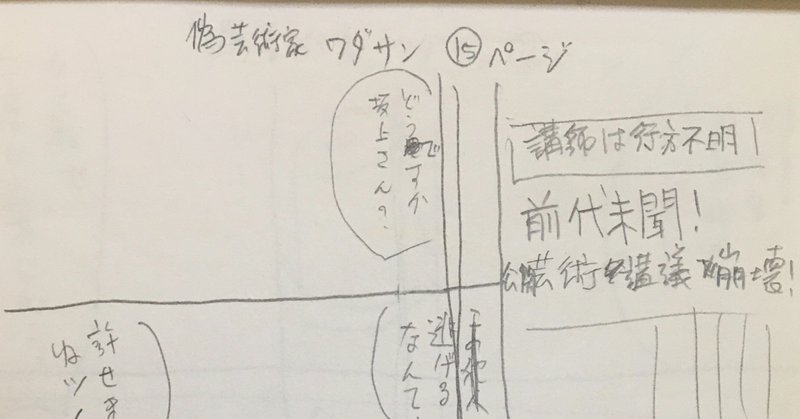 偽芸術家 ワダサン ⑮ページ
講師は行方不明
前代未聞!
芸術講義崩壊!
どうですか
坂上さんの、
逃げる
なんて、
許せま